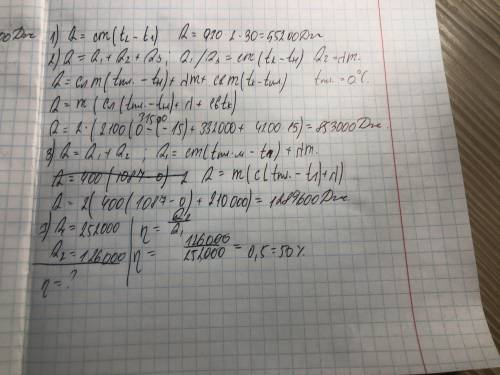 00 Дж 1) Q = cm(t₂ - t₁) Q = 920 · 2 · 30 = 55200 Дж
2) Q = Q₁ + Q₂ + Q₃; Q₁/Q₃ = cm(tк - tн) Q₂ = λm.
Q = cлm(tпл. - tн) + λm + cвm(tк - tпл) tпл. = 0°C.
Q = m(cл(tпл. - tн) + λ + cвtк)
31500
Q = 2 · (2100(0 - (-15) + 332000 + 4200 · 15) = 853000 Дж
3) Q = Q₁ + Q₂; Q₁ = cm(tпл. - tн) + λm.
Q = 400(1087-0) · 2 Q = m(c(tпл. - t₁) + λ)
Q = 2(400(1087-0) + 210000) = 1289600 Дж
7) Q₁ = 252000 η = Q₂/Q₁
Q₂ = 126000 η = 126000/252000 = 0,5 = 50%
η = ?